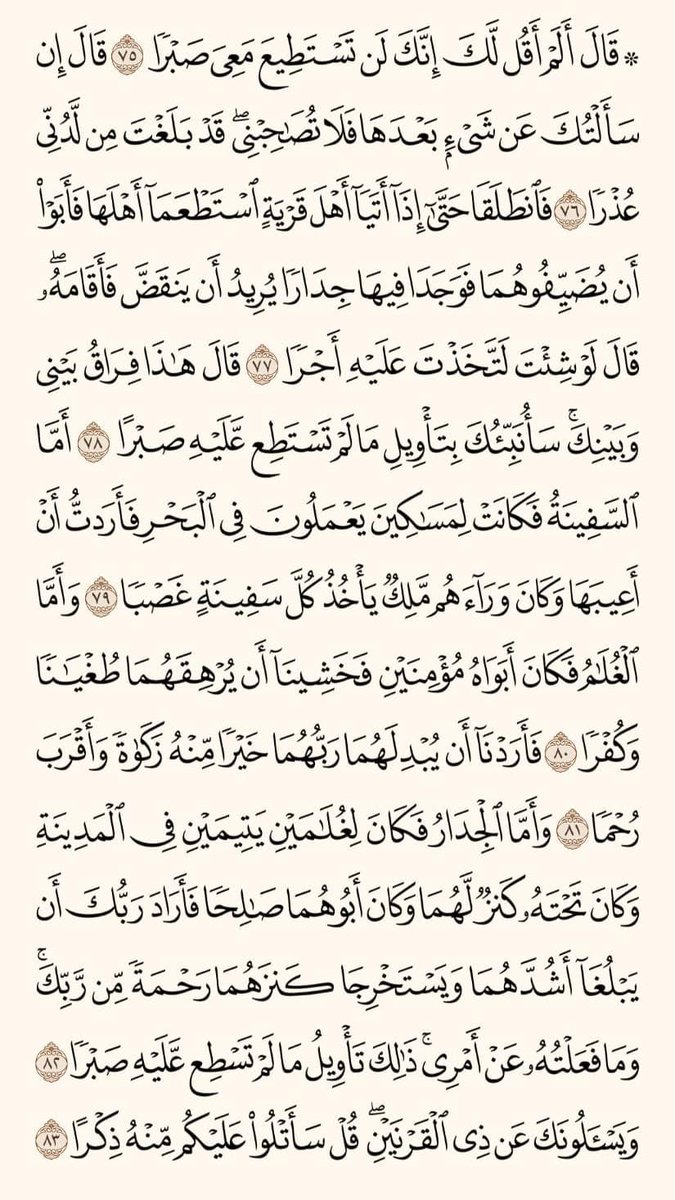 ۞ قَالَ أَلَمْ أَقُل لَّكَ إِنَّكَ لَن تَسْتَطِيعَ مَعِىَ صَبْرًا ٧٥ قَالَ إِن
سَأَلْتُكَ عَن شَىْءٍۭ بَعْدَهَا فَلَا تُصَٰحِبْنِى ۖ قَدْ بَلَغْتَ مِن لَّدُنِّى
عُذْرًا ٧٦ فَٱنطَلَقَا حَتَّىٰٓ إِذَآ أَتَيَآ أَهْلَ قَرْيَةٍ ٱسْتَطْعَمَآ أَهْلَهَا فَأَبَوْا۟
أَن يُضَيِّفُوهُمَا فَوَجَدَا فِيهَا جِدَارًا يُرِيدُ أَن يَنقَضَّ فَأَقَامَهُۥ ۖ
قَالَ لَوْ شِئْتَ لَتَّخَذْتَ عَلَيْهِ أَجْرًا ٧٧ قَالَ هَٰذَا فِرَاقُ بَيْنِى
وَبَيْنِكَ ۚ سَأُنَبِّئُكَ بِتَأْوِيلِ مَا لَمْ تَسْتَطِع عَّلَيْهِ صَبْرًا ٧٨ أَمَّا
ٱلسَّفِينَةُ فَكَانَتْ لِمَسَٰكِينَ يَعْمَلُونَ فِى ٱلْبَحْرِ فَأَرَدتُّ أَنْ
أَعِيبَهَا وَكَانَ وَرَآءَهُم مَّلِكٌ يَأْخُذُ كُلَّ سَفِينَةٍ غَصْبًا ٧٩ وَأَمَّا
ٱلْغُلَٰمُ فَكَانَ أَبَوَاهُ مُؤْمِنَيْنِ فَخَشِينَآ أَن يُرْهِقَهُمَا طُغْيَٰنًا
وَكُفْرًا ٨٠ فَأَرَدْنَآ أَن يُبْدِلَهُمَا رَبُّهُمَا خَيْرًا مِّنْهُ زَكَوٰةً وَأَقْرَبَ
رُحْمًا ٨١ وَأَمَّا ٱلْجِدَارُ فَكَانَ لِغُلَٰمَيْنِ يَتِيمَيْنِ فِى ٱلْمَدِينَةِ
وَكَانَ تَحْتَهُۥ كَنزٌ لَّهُمَا وَكَانَ أَبُوهُمَا صَٰلِحًا فَأَرَادَ رَبُّكَ أَن
يَبْلُغَآ أَشُدَّهُمَا وَيَسْتَخْرِجَا كَنزَهُمَا رَحْمَةً مِّن رَّبِّكَ ۚ
وَمَا فَعَلْتُهُۥ عَنْ أَمْرِى ۚ ذَٰلِكَ تَأْوِيلُ مَا لَمْ تَسْطِع عَّلَيْهِ صَبْرًا ٨٢
وَيَسْـَٔلُونَكَ عَن ذِى ٱلْقَرْنَيْنِ ۖ قُلْ سَأَتْلُوا۟ عَلَيْكُم مِّنْهُ ذِكْرًا ٨٣